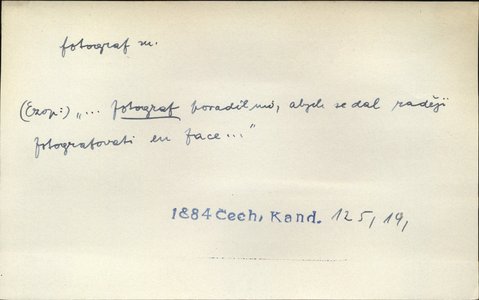 fotograf m.
(Ezop:) „... fotograf poradil mi, abych se dal raději
fotografovati en face..."
1884 Čech, Kand. 125, 19,